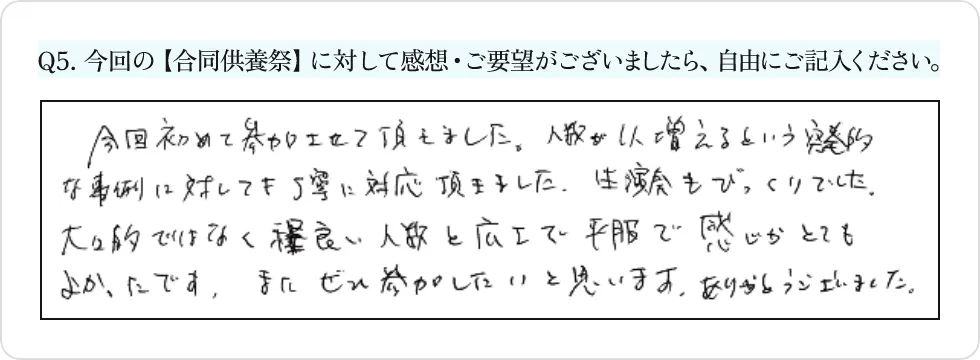 Q5. 今回の【合同供養祭】に対して感想・ご要望がございましたら、自由にご記入ください。
今回初めて参加させて頂きました。人数が1人増えるという突発的
な事例に対しても丁寧に対応頂きました。生演奏もびっくりでした。
大々的ではなく程良い人数と広さで平服で感じがとても
よかったです。またぜひ参加したいと思います。ありがとうございました。